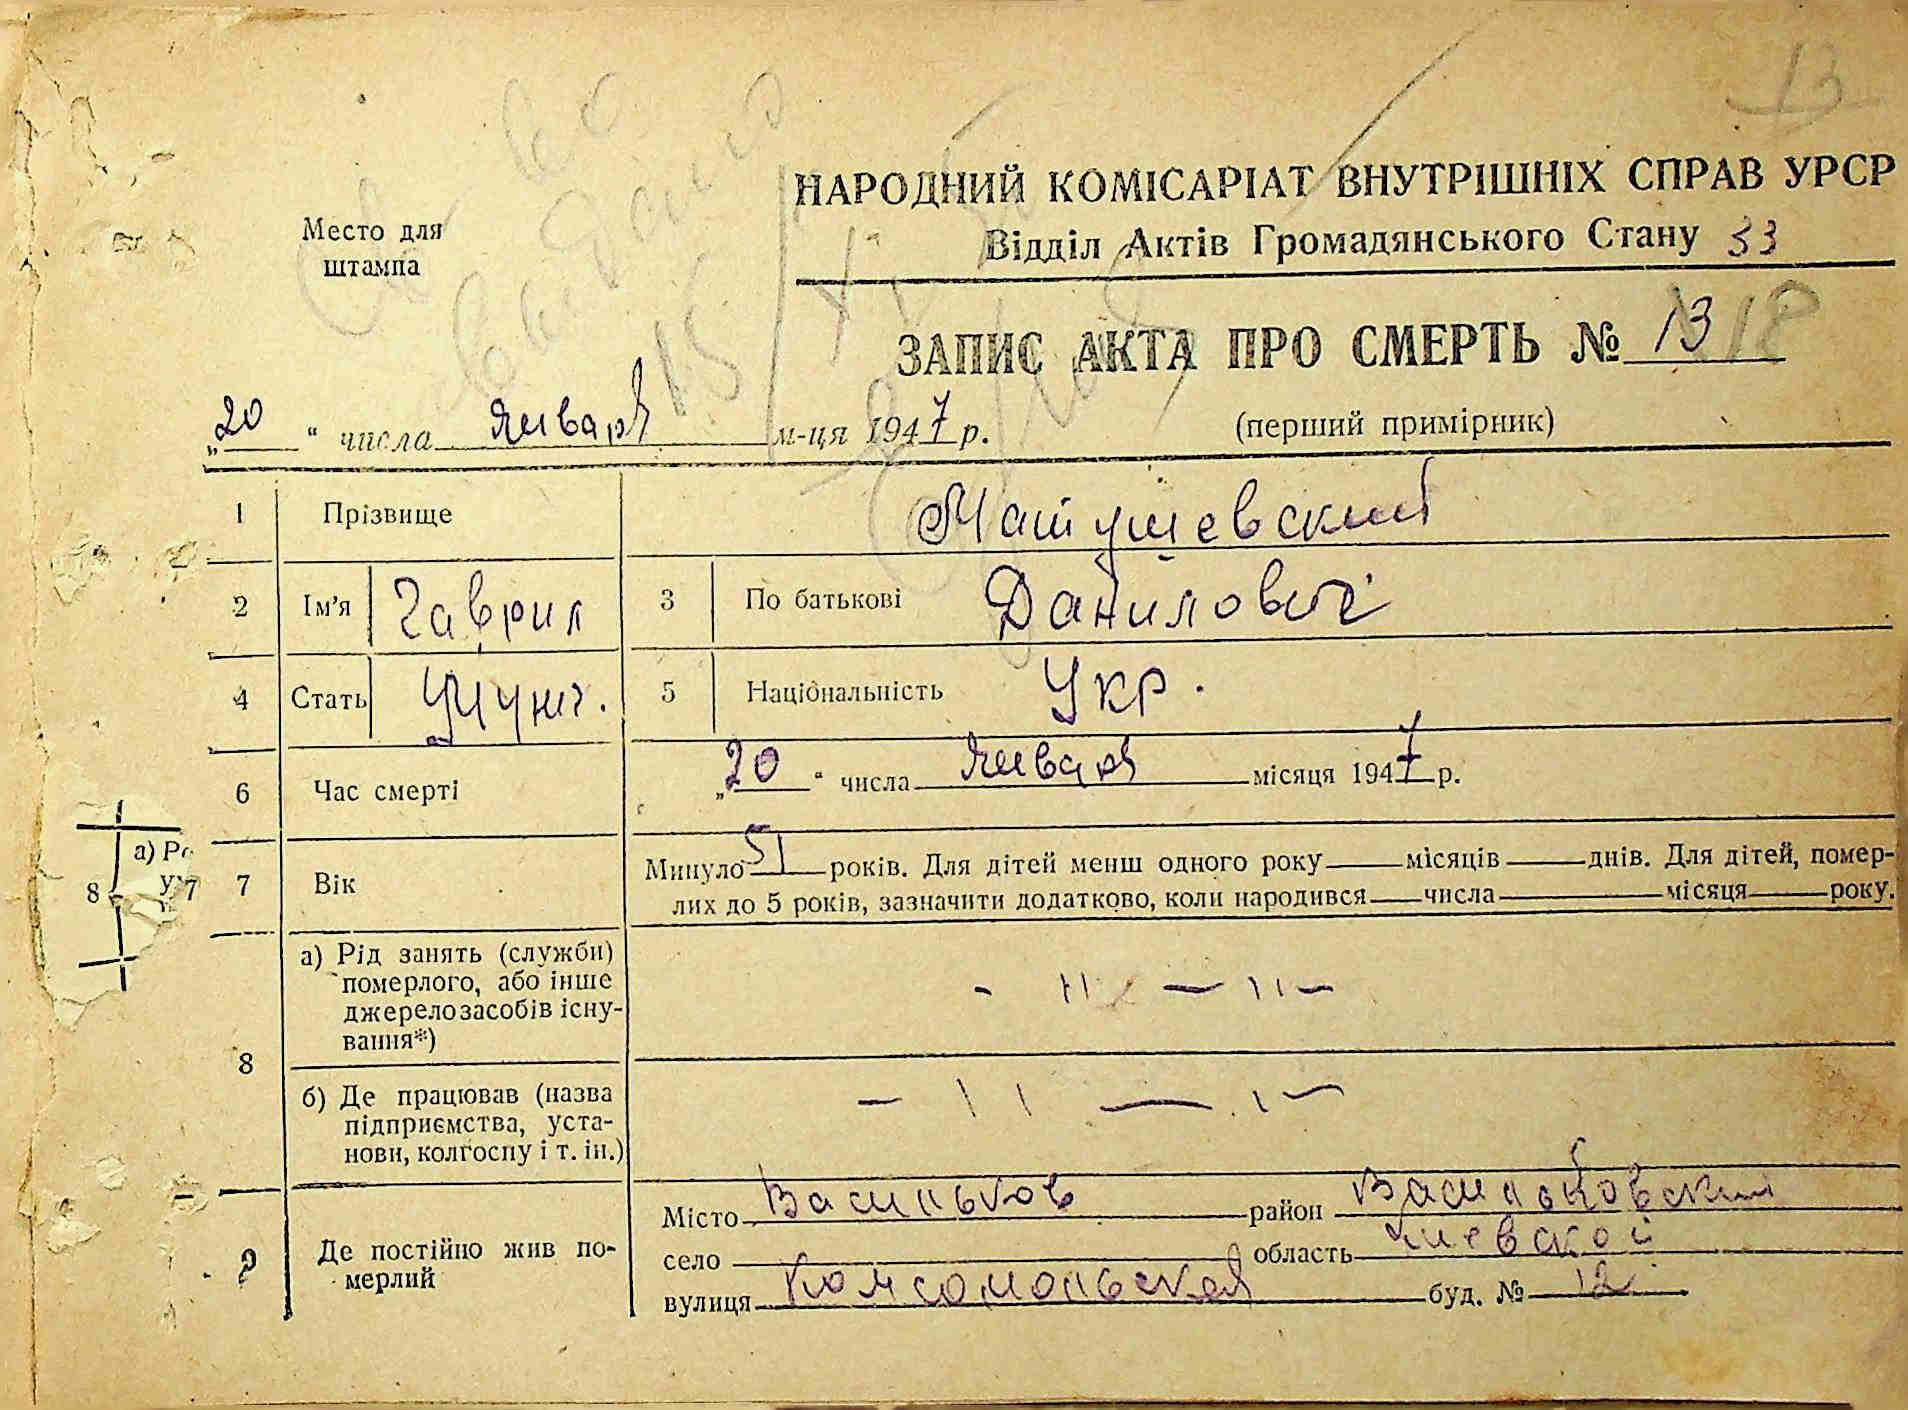 13
НАРОДНИЙ КОМІСАРІАТ ВНУТРІШНІХ СПРАВ УРСР
Место для штампа
Відділ Актів Громадянського Стану 53
ЗАПИС АКТА ПРО СМЕРТЬ № 13 18
„20“ числа января м-ця 1947 р. (перший примірник)
1 Прізвище Матушевский
2 Ім'я Гаврил 3 По батькові Данилович
4 Стать Мужч. 5 Національність Укр.
6 Час смерті „20“ числа января місяця 1947 р.
7 Вік Минуло 51 років. Для дітей менш одного року місяців днів. Для дітей, помер-
лих до 5 років, зазначити додатково, коли народився числа місяця року.
8 а) Рід занять (служби)
померлого, або інше
джерело засобів існу-
вання*) - " — " —
б) Де працював (назва
підприємства, уста-
нови, колгоспу і т. ін.) — " — " —
9 Де постійно жив по-
мерлий
Місто Васильков район Васильковский
село область Киевской
вулиця Комсомольская буд. № 12
8 а) Рс
7